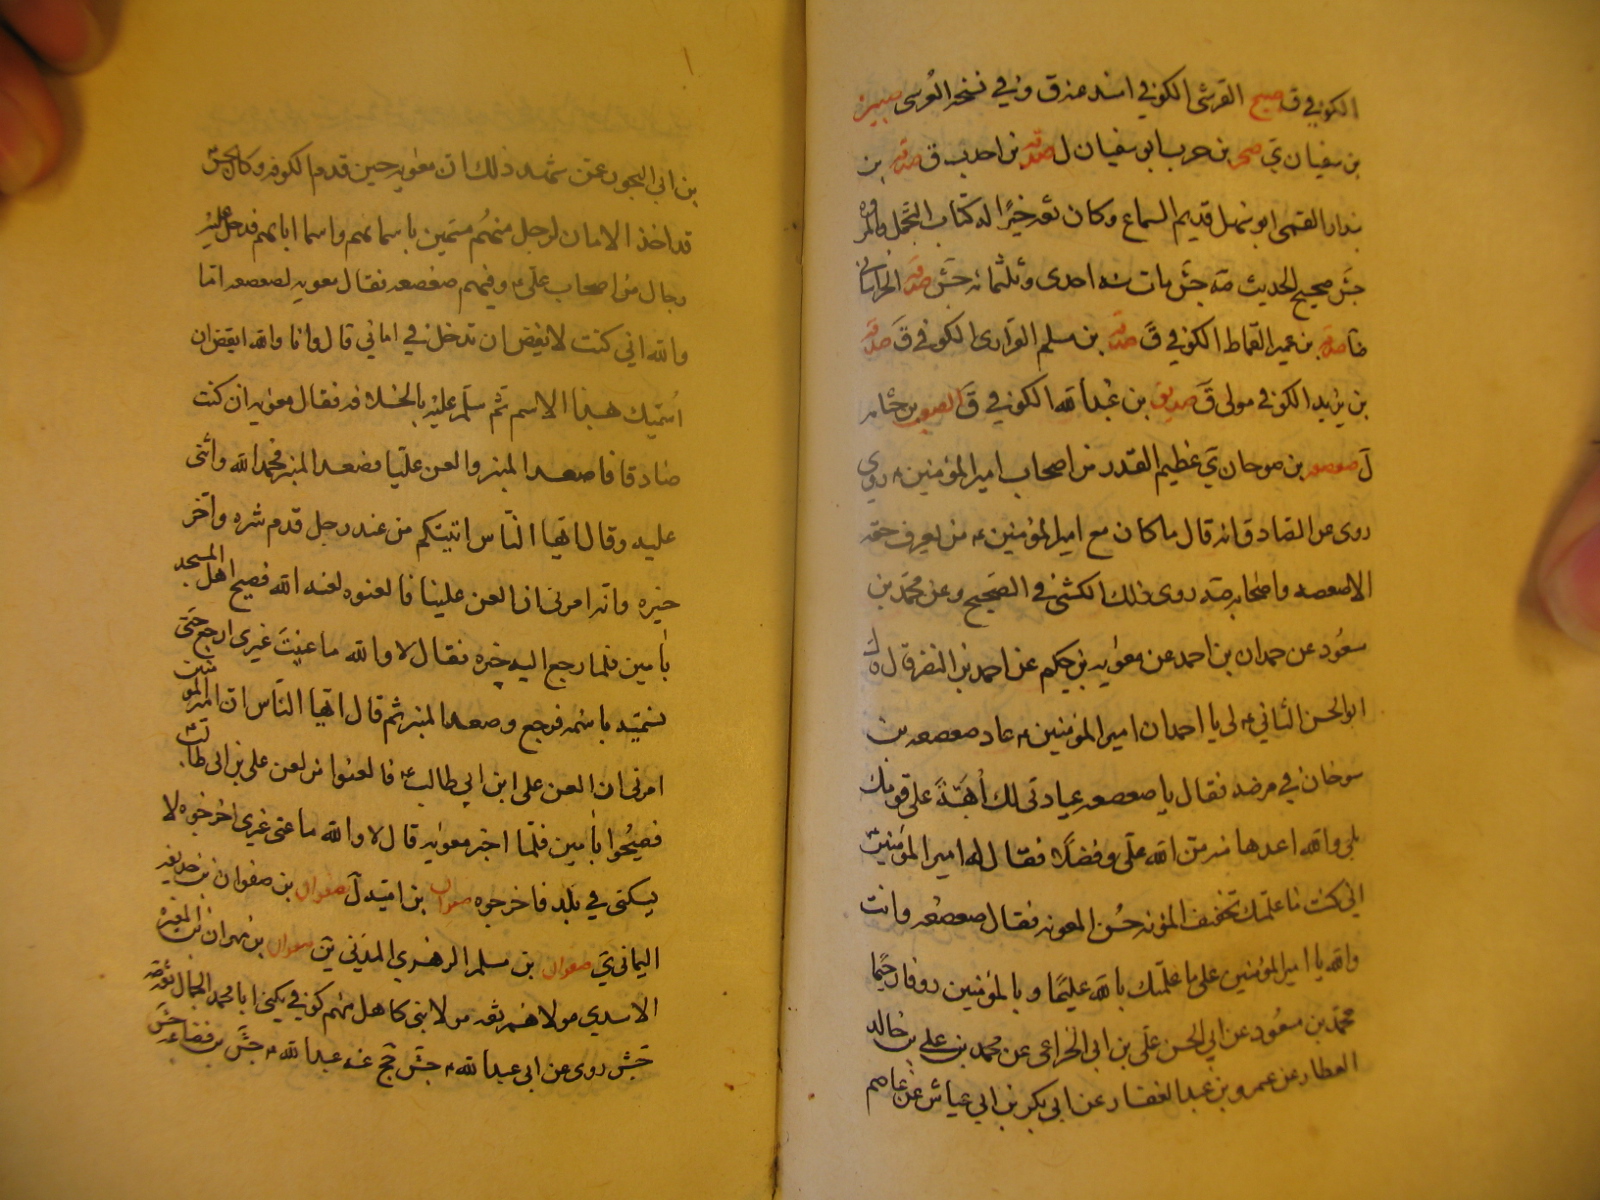 الكوفي ق صبيح القرشي الكوفي اسند عنه ق وفي نسخة
بن سفيان ي صخر بن حرب ابو سفيان ل صدقه بن احدب ق صدقه بن
بندار القمي ابو سهل قديم السماع وكان ثقه خيرًا له كتاب التجمل والمروه
جش صحيح الحديث صه جش مات سنه احدى وثلثمائه جش صدقه الخراساني
ضا صدقه بن عمير القماط الكوفي ق صدقه بن مسلم الكوفي ق صدقه
بن يزيد الكوفي مولى ق صديق بن عبد الله الكوفي ق الصعب بن جثامه
ل صعصعه بن صوحان ي عظيم القدر من اصحاب امير المؤمنين ع روى
روى عن الصادق انه قال ما كان مع امير المؤمنين ع من يعرف حقه
الا صعصعه واصحابه صه روى ذلك الكشي في الصحيح وعن محمد بن
مسعود عن حمدان بن احمد عن معويه بن حكيم عن احمد بن النضر قال قال
ابو الحسن الثاني ع لي يا احمد ان امير المؤمنين ع عاد صعصعه بن
صوحان في مرضه فقال يا صعصعه عيادتي لك أبهة على قومك
بلى والله اعدها منه من الله علي وفضلا فقال له امير المؤمنين ع
اني كنت ما علمتك تخفف المؤنه حسن المعونه فقال صعصعه وانت
والله يا امير المؤمنين على ما علمتك بالله عليمًا وبالمؤمنين روفا رحيمًا
محمد بن مسعود عن ابي الحسن علي بن ابي الخزاعي عن محمد بن علي بن خالد
العطار عن عمرو بن عبد الغفار عن ابي بكر بن ابي عياش عن عاصم
بن ابي النجود عمن شهد ذلك ان معويه حين قدم الكوفه وكان الحسن ع
قد اخذ الامان لرجل منهم مسمين باسمائهم واسما ابائهم فدخل عليه
رجال من اصحاب علي ع وفيهم صعصعه فقال معويه لصعصعه اما
والله اني كنت لا بغض ان تدخل في اماني قال وانا والله ابغض ان
اسميك هذا الاسم ثم سلم عليه بالخلافه فقال معويه ان كنت
صادقا فاصعد المنبر والعن عليا فصعد المنبر فحمد الله واثنى
عليه وقال ايها الناس اتيتكم من عند رجل قدم شره وآخر
خيره وانه امرني ان العن عليا فالعنوه لعنه الله فضج اهل المسجد
بآمين فلما رجع اليه خبره فقال لا والله ما عنيت غيري ارجع حتى
تسميه باسمه فرجع وصعد المنبر ثم قال ايها الناس ان امير المومنين
امرني ان العن علي ابن ابي طالب ع فالعنوا من لعن علي بن ابي طالب ع
فضجوا بآمين فلما اخبر معويه قال لا والله ما عنى غيري اخرجوه لا
يسكني في بلد فاخرجوه صفوان بن اميه ل صفوان بن صفوان بن حذيفه
اليماني ي صفوان بن سلم الزهري المدني ين صفوان بن مهران بن المغيره
الاسدي مولاهم ثقه مولا بني كاهل منهم كوفي يكنى ابا محمد الجمال ثقه صه
جش روى عن ابي عبد الله ع جش عبد الله ع جش بن قضاعه جش